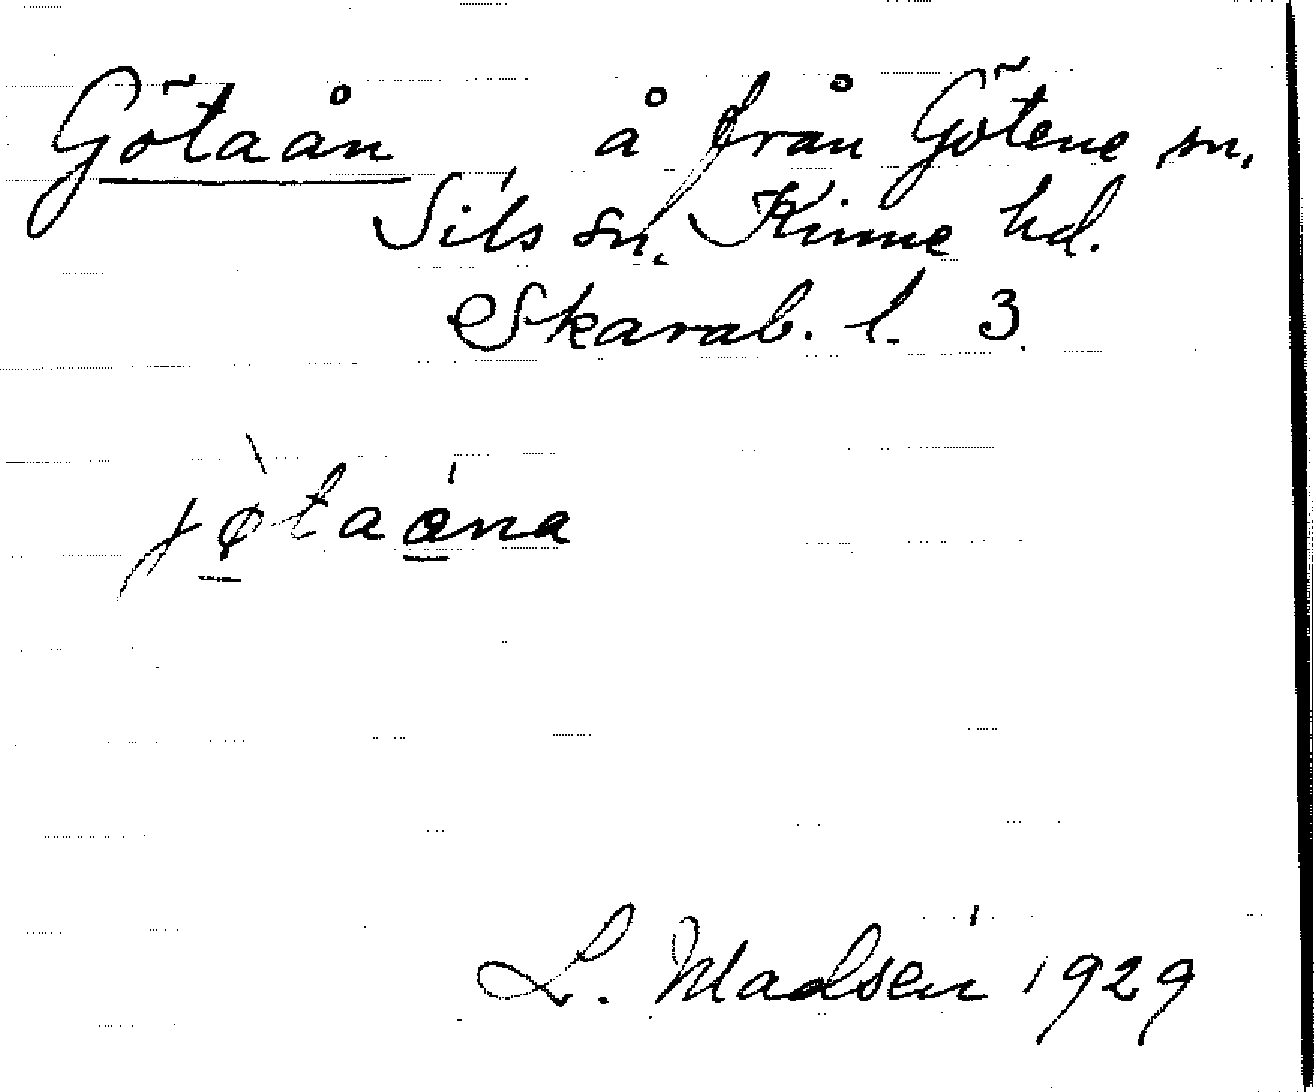 Götaån å från Götene sn,
Sils sn, Kinne hd.
Skarab. l. 3.
jø̀taåna
L. Madsén 1929